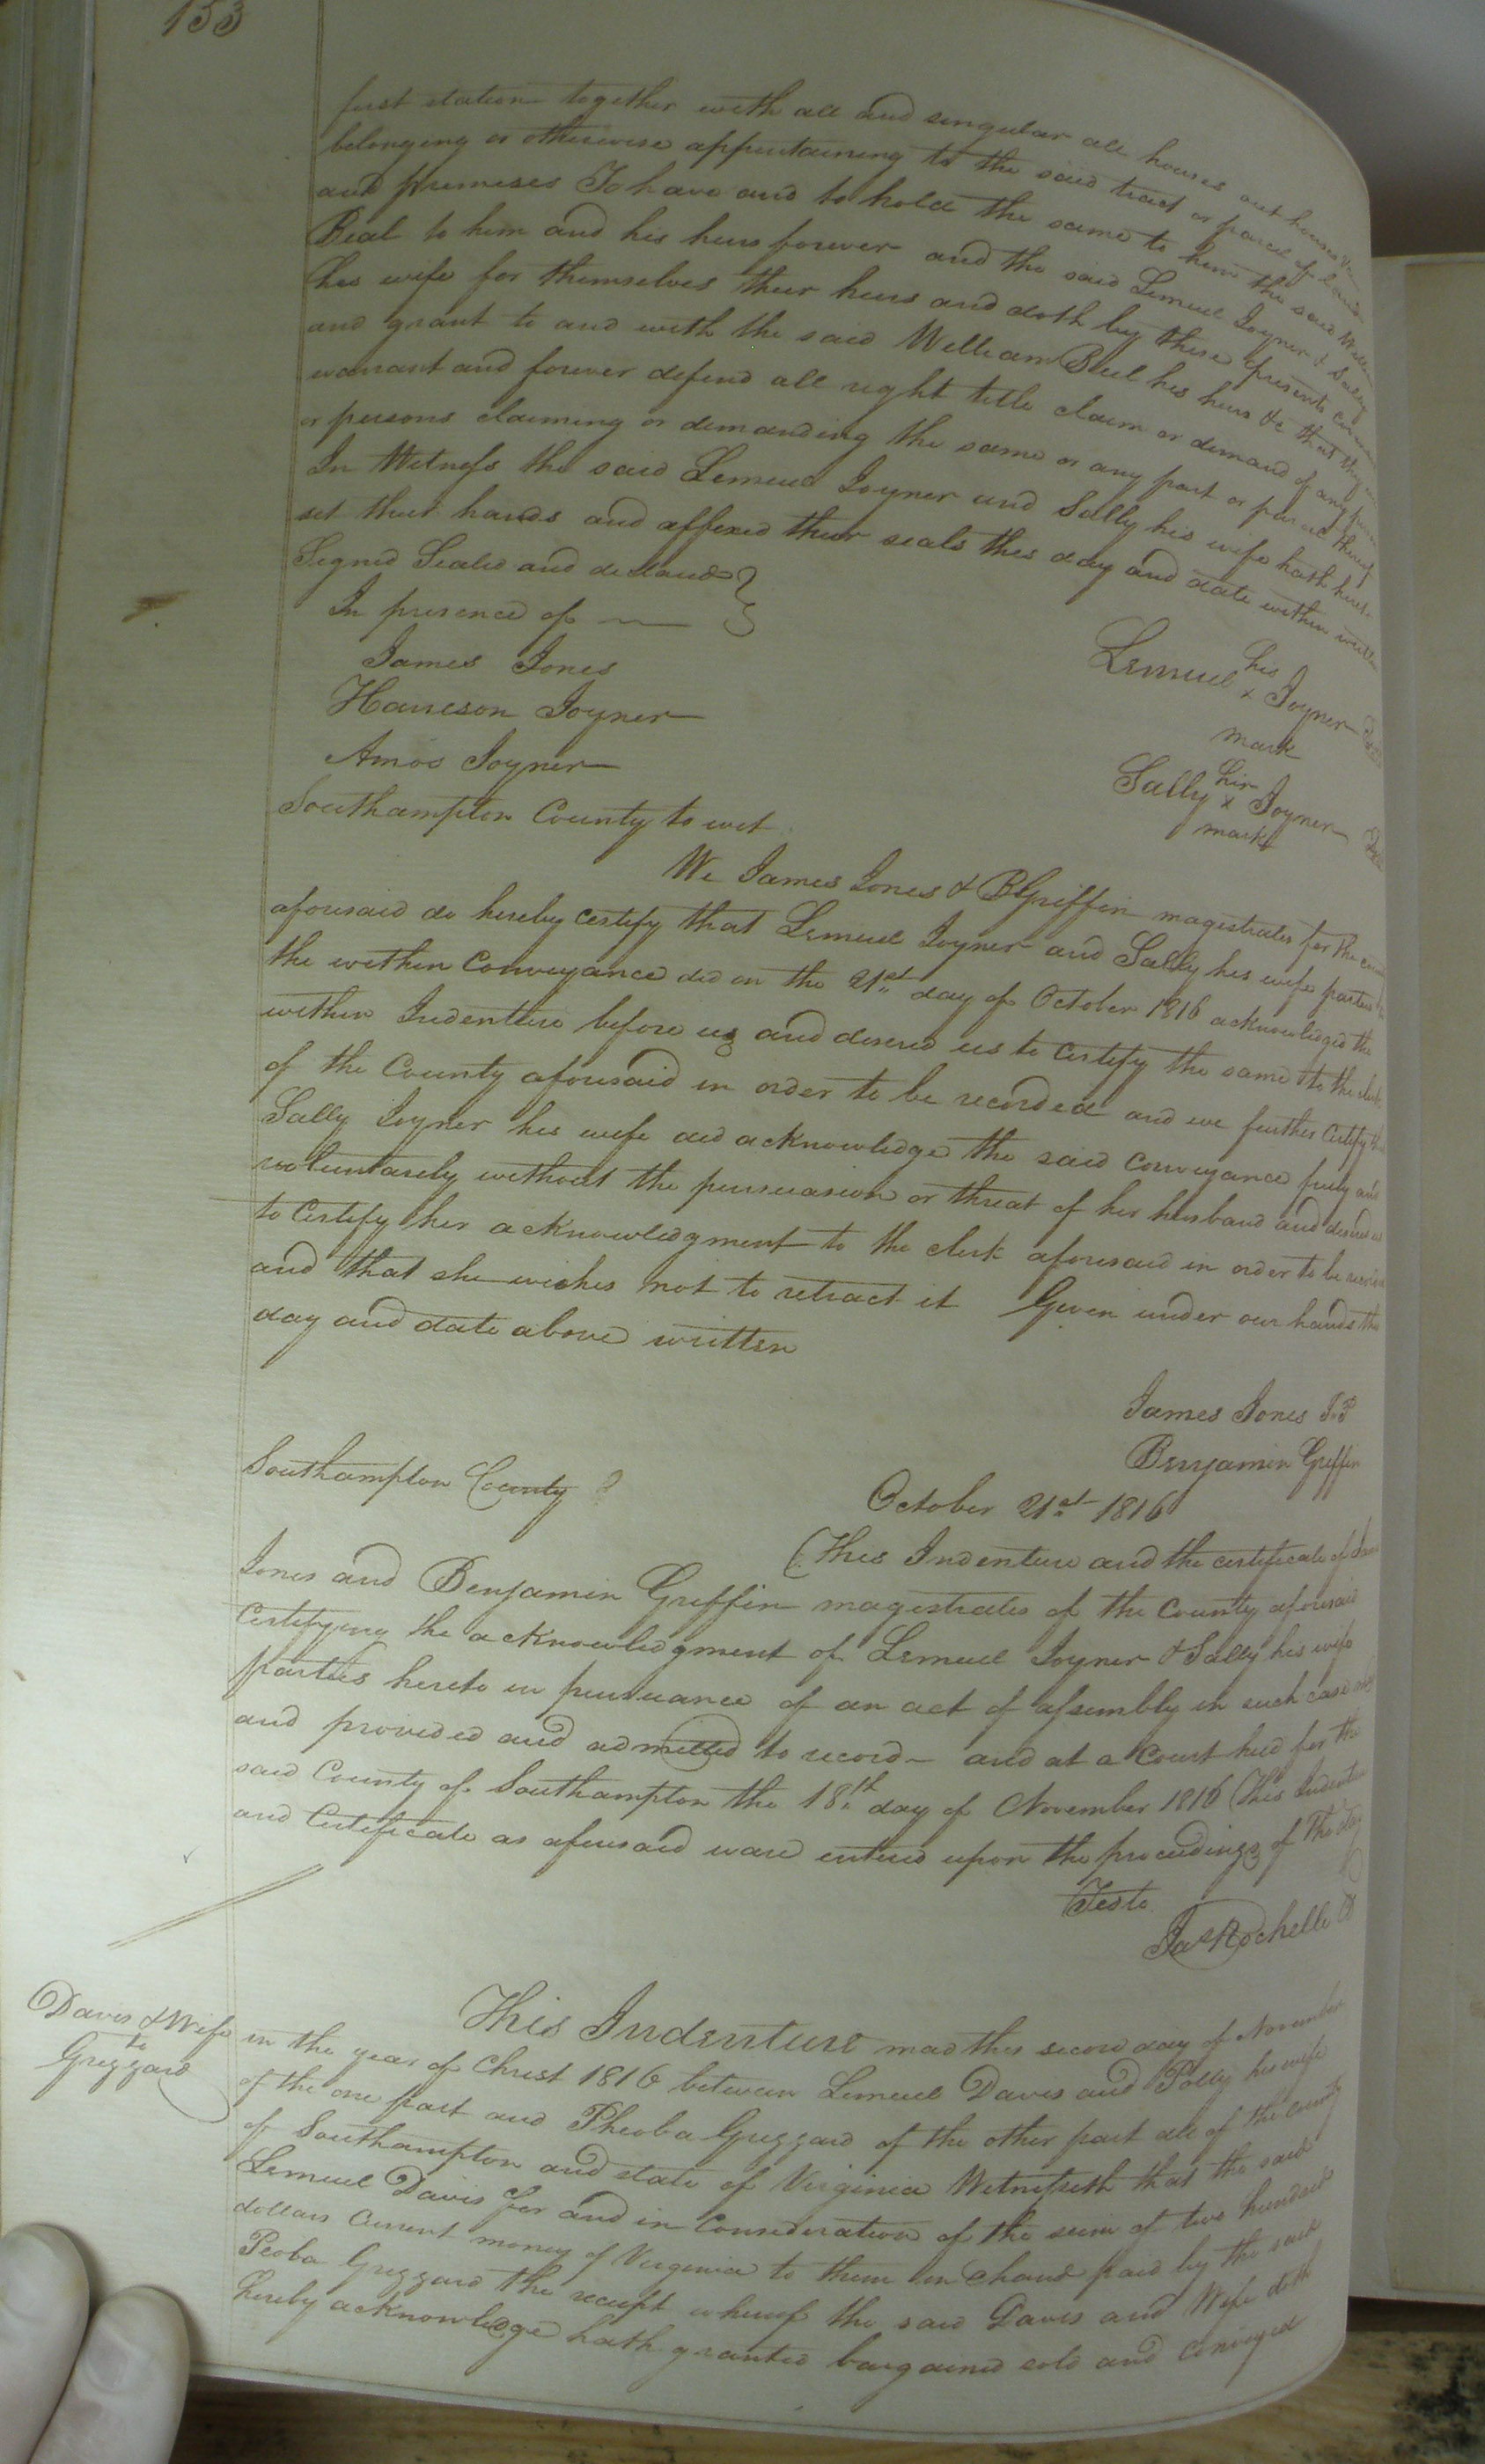 153
first station together with all and singular all houses out houses
belonging or otherwise appertaining to the said tract or parcel of land
and premises To have and to hold the same to him the said Will
Beal to him and his heirs forever and the said Lemuel Joyner & Sally
his wife for themselves their heirs and doth by these presents
and grant to and with the said William Beel his heirs &c that they
warrant and forever defend all right title claim or demand of any
or persons claiming or demanding the same or any part or parcel thereof
In Witness the said Lemuel Joyner and Sally his wife hath here
set their hands and affixed their seals this day and date within
Signed Sealed and
In presence of
his
Lemuel x Joyner
mark
James Jones
Harrison Joyner
her
Sally x Joyner
mark
Amos Joyner
Southampton County to wit
We James Jones & B Griffin magistrates for the
aforesaid do hereby certify that Lemuel Joyner and Sally his wife parties
the within Conveyance did on the 21st day of October 1816 acknowledged the
within Indenture before us and desired us to certify the same to the clerk
of the County aforesaid in order to be recorded and we further certify
Sally Joyner his wife did acknowledge the said conveyance freely and
voluntarely without the persuasion or threat of her husband and desired us
to Certify her acknowledgment to the clerk aforesaid in order to be
and that she wishes not to retract it Given under our hands the
day and date above written
James Jones J.P
Benjamin Griffin
Southampton County
October 21st 1816
This Indenture and the certificate of
Jones and Benjamin Griffin magistrates of the County aforesaid
Certifying the acknowledgment of Lemuel Joyner & Sally his wife
parties hereto in pursuance of an act of assembly in such case
and provided and admitted to record - and at a Court held for the
said County of Southampton the 18th day of November 1816 This Indenture
and Certificate as aforesaid ware entered upon the proceedings of the day
Teste
Jas Rochelle
Davis & Wife
to
Grizzard
This Indenture mad this second day of November
in the year of Christ 1816 between Lemuel Davis and Polly his wife
of the one part and Pheoba Grizzard of the other part all of the County
of Southampton and state of Virginia Witnesseth that the said
Lemuel Davis for and in Consideration of the sum of two hundred
dollars Current money of Virginia to them in hand paid by the said
Peoba Grizzard the receipt whereof the said Davis and Wife doth
hereby acknowledge hath granted bargained sold and conveyed